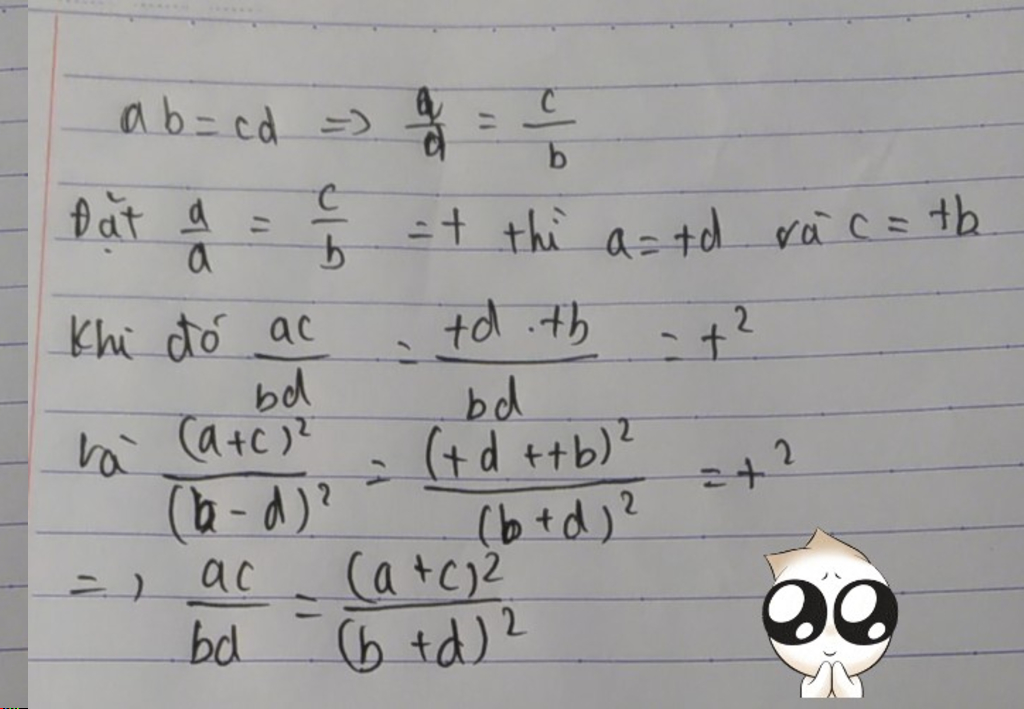 ab = cd => a/d = c/b
Đặt a/a = c/b = t thì a = td và c = tb
Khi đó ac/bd = td . tb/bd = t²
và (a+c)²/(b-d)² = (td + tb)²/(b+d)² = t²
=> ac/bd = (a+c)²/(b+d)²